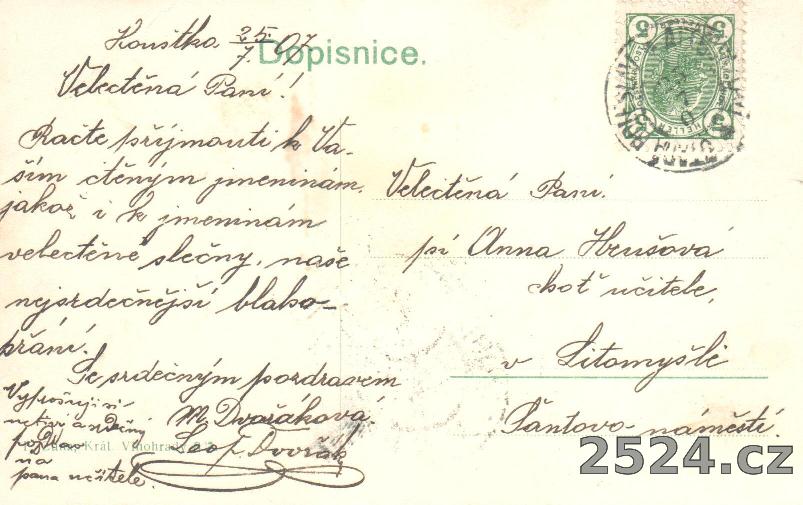 Dopisnice.
25/7. 07
Velectěná Paní!
Račte přijmouti k Va-
ším ctěným jmeninám,
jakož i k jmeninám
velectěné slečny, naše
nejsrdečnější blaho-
přání.
Se srdečným pozdravem
M. Dvořáková.
Leo f. Dvořák
uctivý a srdečný
na
pana učitele.
Král. Vinohrady
Velectěná Paní.
pí Anna Hrušová
choť učitele,
v Litomyšli
Šantovo náměstí.
5 5
HELLER
2524.cz